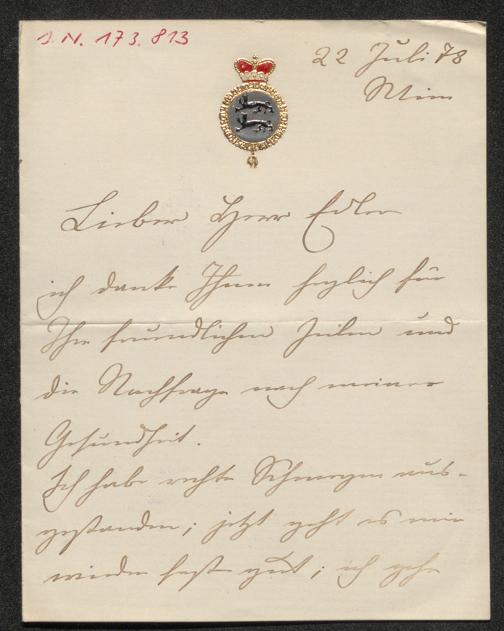 J. N. 173.813
22 Juli 78
Wien
Lieber Herr Edler
ich danke Ihnen herzlich für
Ihre freundlichen Zeilen und
die Nachfrage nach meiner
Gesundheit.
Ich habe rechte Schmerzen aus-
gestanden; jetzt geht es mir
wieder fast gut; ich gehe